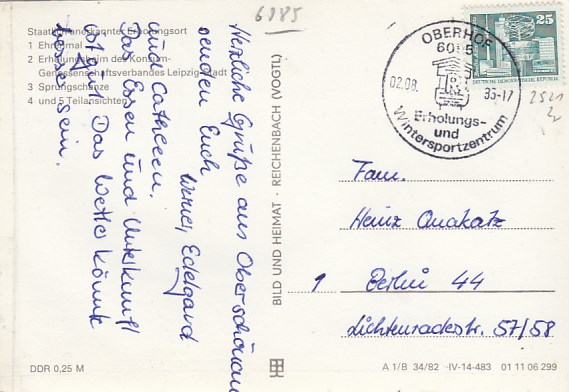 6985
Staatlich anerkannter Erholungsort
1 Ehrenmal
2 Erholungsheim des Konsum-
Genossenschaftsverbandes Leipzig-Stadt
3 Sprungschanze
4 und 5 Teilansichten
Herzliche Grüße aus Oberschönau
senden Euch
Werner, Edelgard
und Cathleen.
Das Essen und Unterkunft
ist gut. Das Wetter könnte
besser sein.
DDR 0,25 M
BILD UND HEIMAT · REICHENBACH (VOGTL)
OBERHOF
6055
02.08.
-17
Erholungs-
und
Wintersportzentrum
25
DEUTSCHE DEMOKRATISCHE REPUBLIK
Fam.
Heinz Quakatz
1 Berlin 44
Lichtenraderstr. 57/58
A 1/B 34/82 ·IV-14-483 01 11 06 299